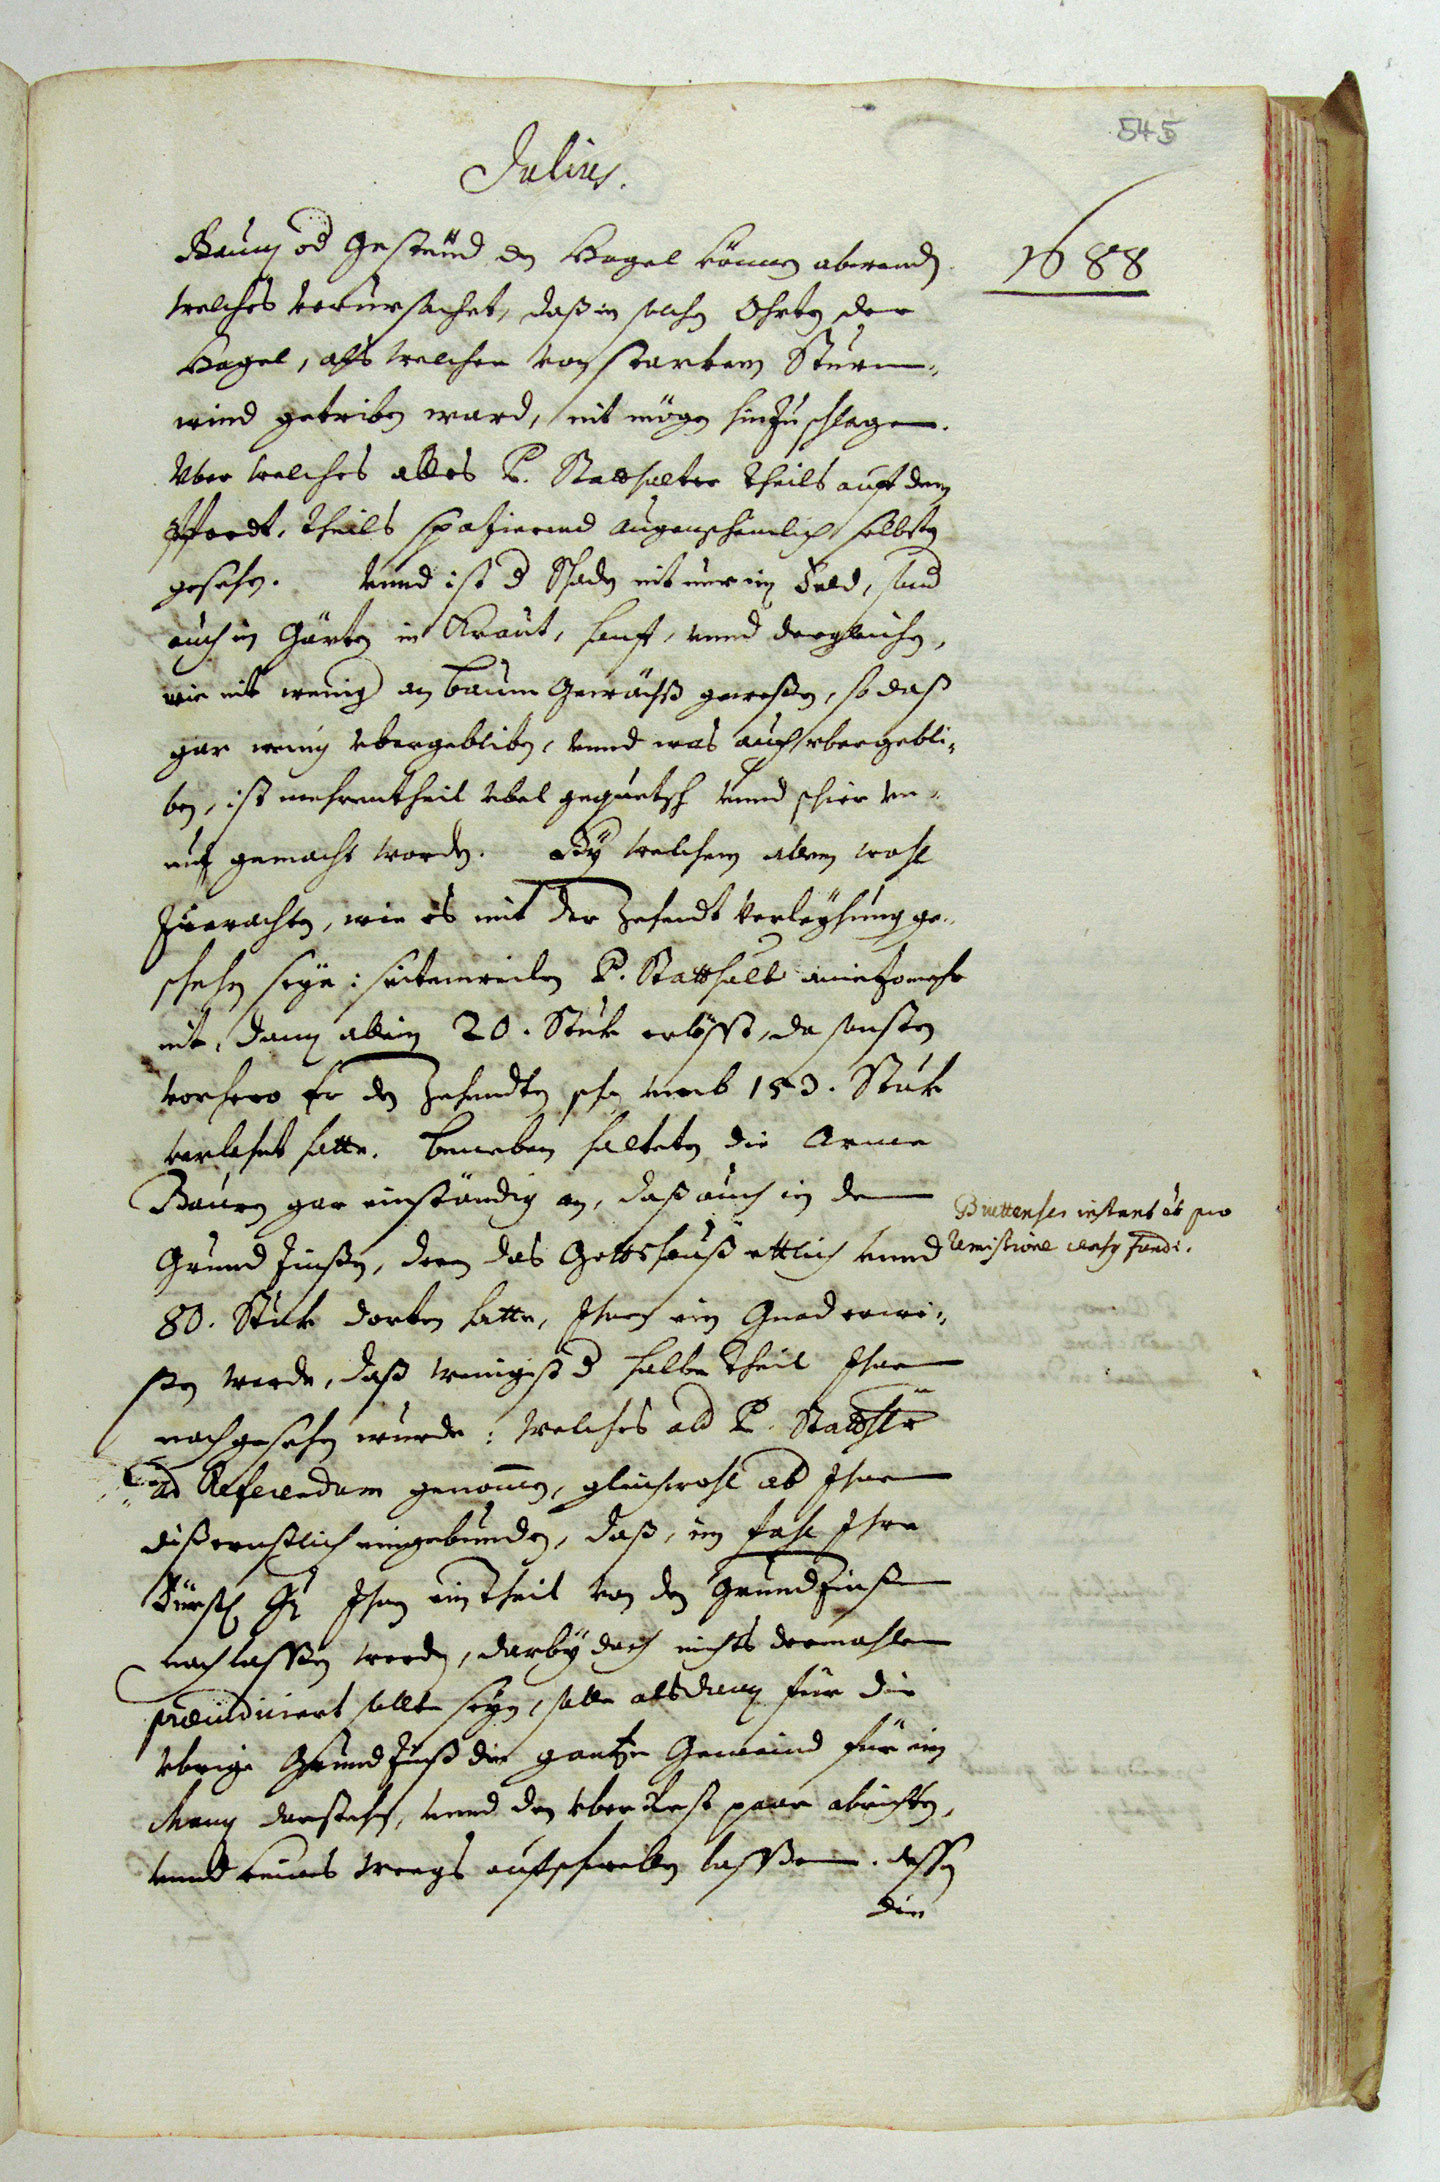 545
Julius.
1688
Baum od Gesteüd den Hagel können abwend,
welches verursachet, daß in solchen Ohrten der
Hagel, alß welcher von starkem Sturm-
wind getriben ward, nit mögen hinzuschlagen.
Vber welches alles P. Statthalter theils auff dem
Pferdt, theils spazierend augenscheinlich selbsten
gesehen. Vnnd ist d Schaden nit nur im Feld, sond
auch in Gärten in Kraut, hanff, vnnd dergleichen,
wie nit wenig an baum Gewächß gewesen, so daß
gar wenig vbergebliben, vnnd was auch vbergebli-
ben, ist mehrentheil vbel gequetsch vnnd schier vn-
nuz gemacht worden. Bey welchem allem wohl
Zuerachten, wie es mit der Zehendt Verleyhung ge-
schehen seye: seitenweilen P. Statthalt
nit, dann allein 20. Stuk erlößt, da sonsten
vorhero Er den Zehendten schon vmb 153. Stuk
verlehnt hatte. beneben halteten die Arme
Bauren gar einständig an, daß auch in dem
Grund Zinßen, deren das Gottshauß ettlich vnnd
80. Stuk dorten hatte, Ihnen ein Gnad erwi-
sen werde, daß wenigist d halbe theil Ihnen
nachgesehen wurde: Welches P. Statthltr
ad Referendum genommen, gleichwohl Ihnen
diß ernstlich eingebunden, daß, im fahl Ihre
Fürstl Gn Ihnen ein theil von den Grund Zinßen
nachlassen werden, darbey doch nichts dermahlen
præiudiciert sollte seyn, solle alsdann für die
vbrige Grund Zinß die gantze Gemeind für ein
Mann darstehen, vnnd den vber Rest paar abrichten,
vnnd keines weegs aufschwellen lassen. dessen
die
Buettenses instant ut pro
remissione census fundi.